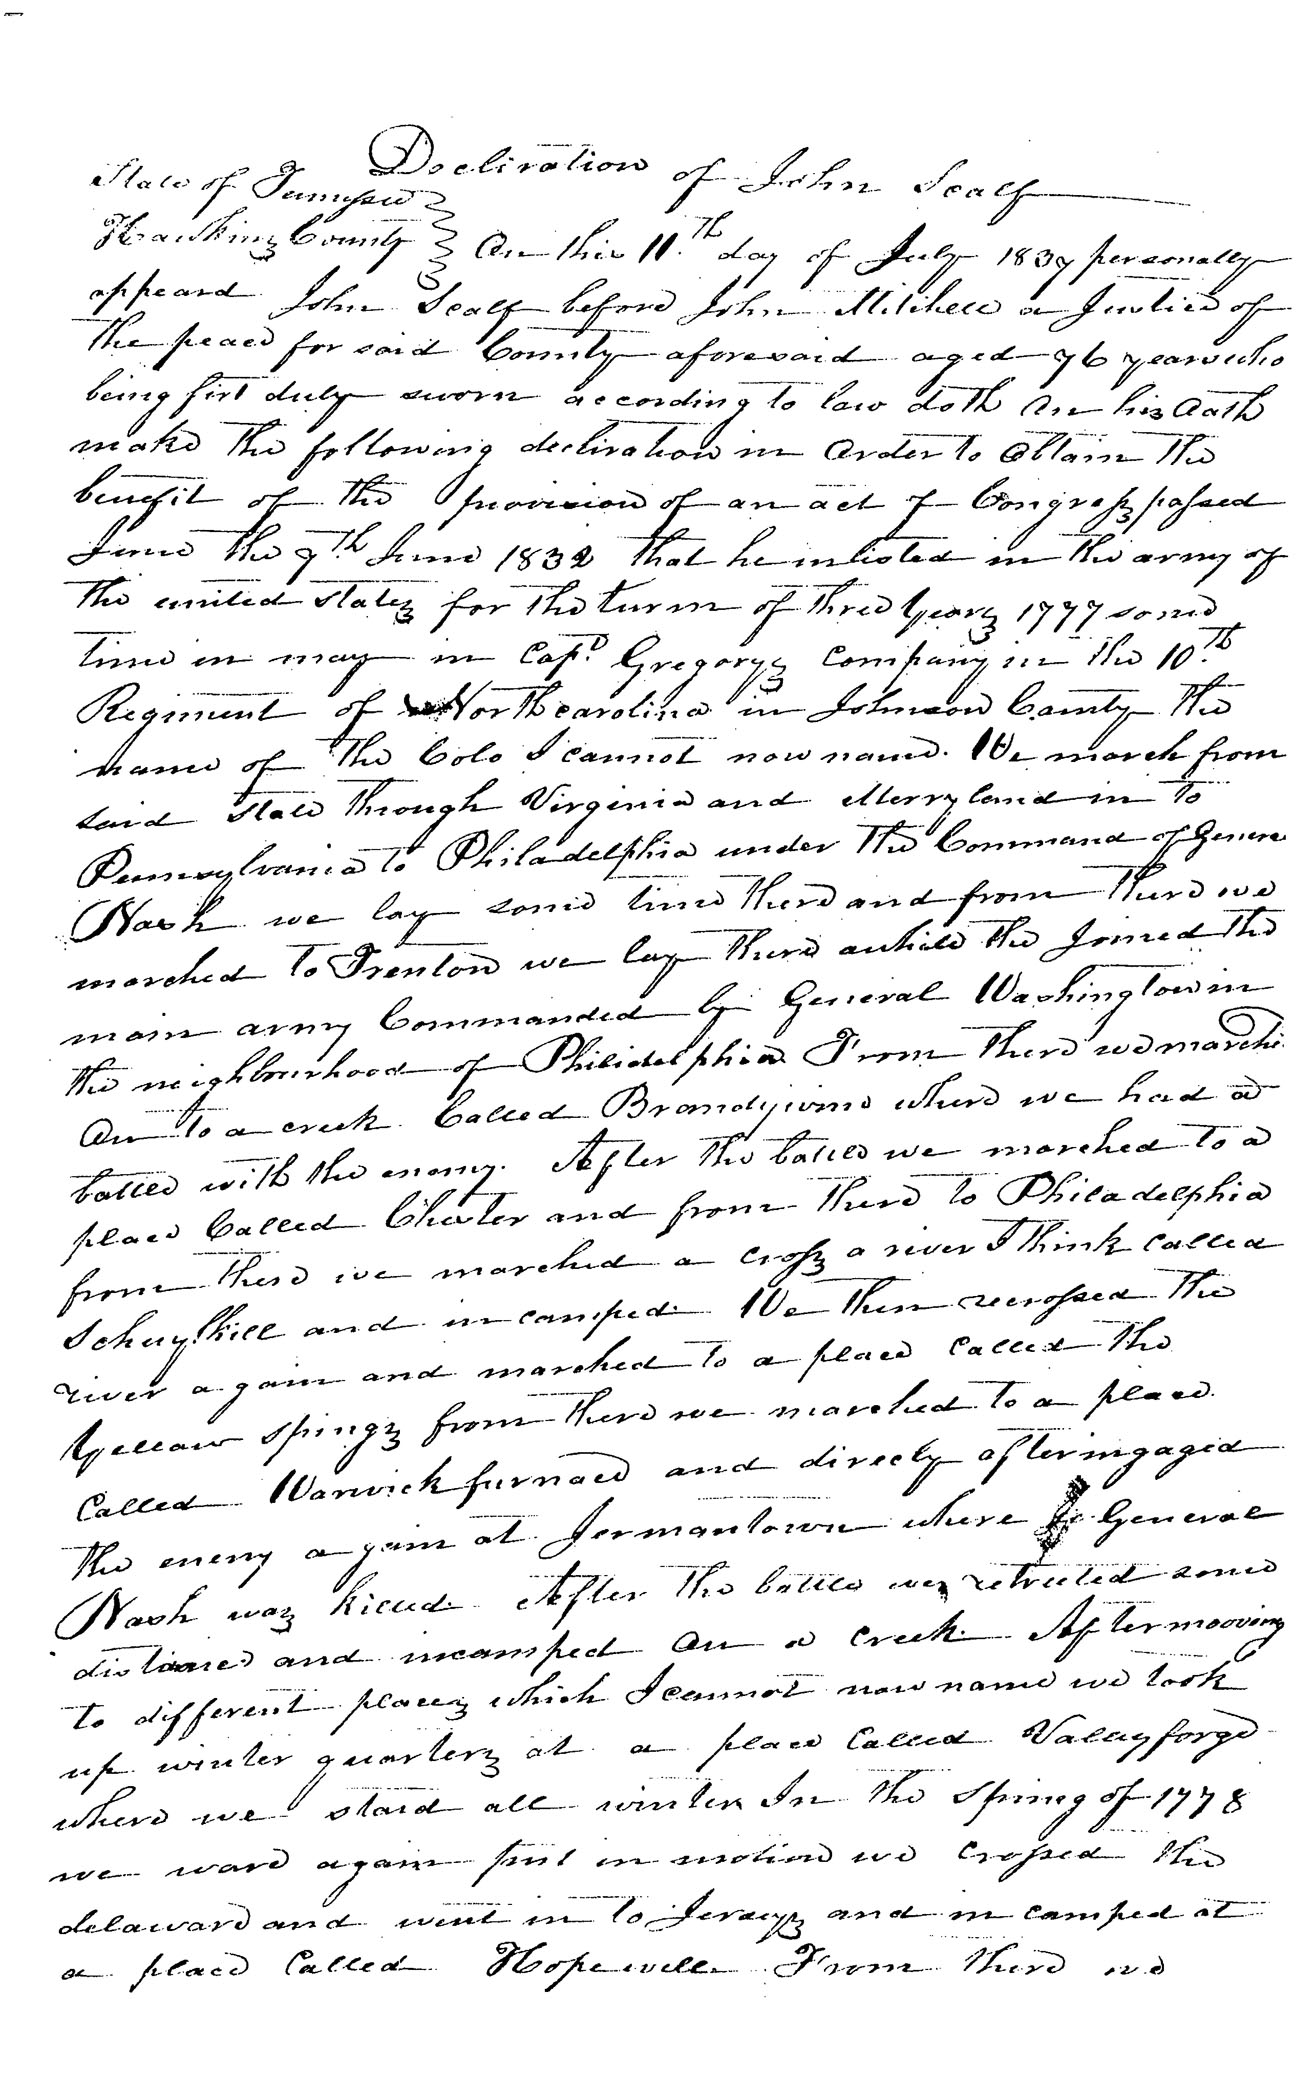 Decliration of John Scalf
State of Tennessee
Hawkins County } On this 11.th day of July 1837 personally
appeard John Scalf before John Mitchell a Justice of
the peace for said County aforesaid aged 76 years who
being first duly sworn according to law doth On his Oath
make the following decliration in Order to Obtain the
benefit of the provision of an act of Congress passed
June the 7th June 1832 that he inlisted in the army of
the united states for the turm of three years 1777 some
time in may in Capt Gregorys Company in the 10th
Regiment of North carolina in Johnson County the
name of the Colo I cannot now name. We march from
said State through Virginia and Merryland in to
Pennsylvania to Philadelphia under the Command of Genera
Nash we lay some time there and from there we
marched to Trenton we lay there awhile the Joined the
main army Commanded by General Washington in
the neighbourhood of Philidelphia From there we marche
On to a creek Called Brandywine where we had a
battle with the enemy. After the battle we marched to a
place Called Chester and from there to Philadelphia
from there we marched a cross a river I think called
Schuylkill and incamped. We then recrossed the
river again and marched to a place called the
Yellow springs from there we marched to a place
Called Warwick furnace and direcly after ingaged
the enemy again at Jermantown where General
Nash was killed. After the battle we retreeted some
distance and incamped On a creek. After mooving
to different places which I cannot now name we took
up winter quarters at a place Called Valleyforge
where we staid all winter In the Spring of 1778
we ware again put in motion we crossed the
delaware and went in to Jerseys and in camped at
a place Called Hopewell From there we